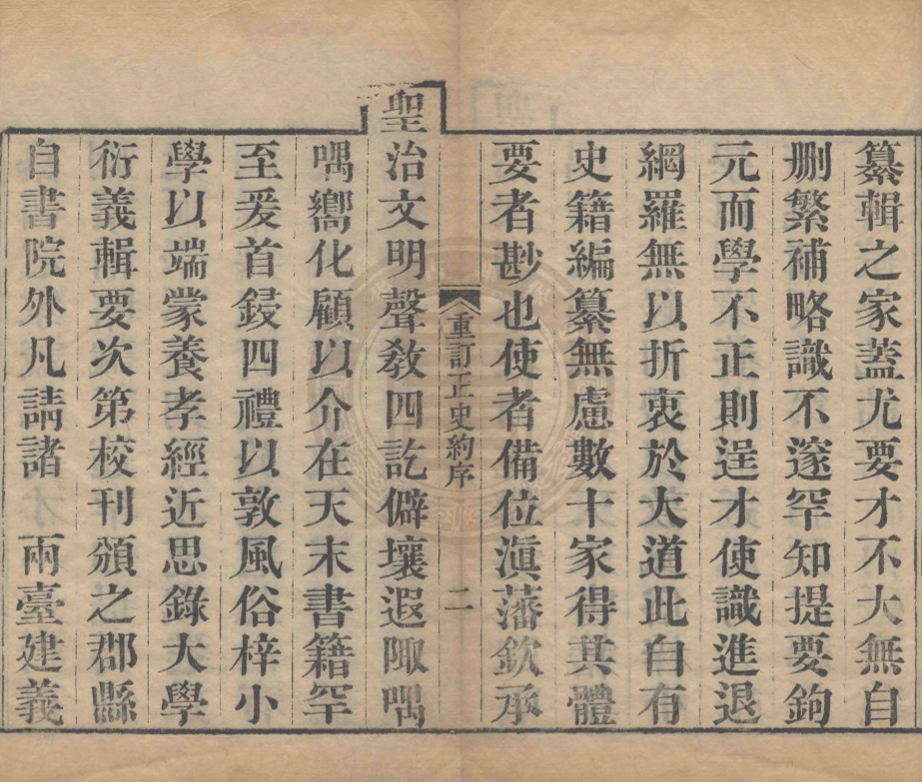 纂輯之家蓋尤要才不大無自
删繁補略識不邃罕知提要鉤
元而學不正則逞才使識進退
網羅無以折衷於大道此自有
史籍編纂無慮數十家得其體
要者尠也使者備位滇藩欽承
重訂正史約序 二
聖治文明聲敎四訖僻壤遐陬喁
喁嚮化顧以介在天末書籍罕
至爰首鋟四禮以敦風俗梓小
學以端蒙養孝經近思錄大學
衍義輯要次第校刊頒之郡縣
自書院外凡請諸 兩臺建義